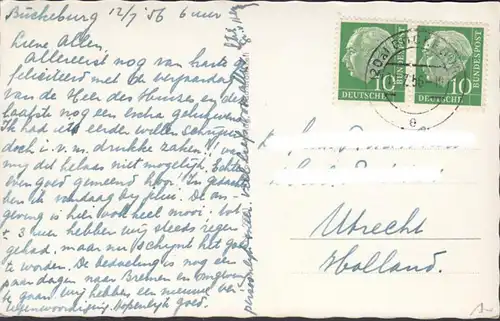 Bückeburg 12/7 '56 6 uur
Lieve Allen,
Allereerst nog van harte ge-
feliciteerd met de verjaardag
van de Heer des Huizes en de
Laatste nog een extra gelukwens.
Ik had iets eerder willen schrijven
doch i.v.m. drukke zaken!! was
mij dat helaas niet mogelijk. Echter
even goed gemeend hoor! In gedachten
ben ik vandaag bij jullie. De om-
geving is hier ook heel mooi. tot
± 3 uur hebben wij steeds regen
gehad. maar nu schijnt het goed
te worden. De bedoeling is nog een
paar dagen naar Bremen en omgeving
te gaan. Wij hebben een nieuwe ver-
tegenwoordiging. hopenlijk goed.
10
DEUTSCHE
BUNDESPOST
10
DEUTSCHE
BUNDESPOST
e
Utrecht
Holland.